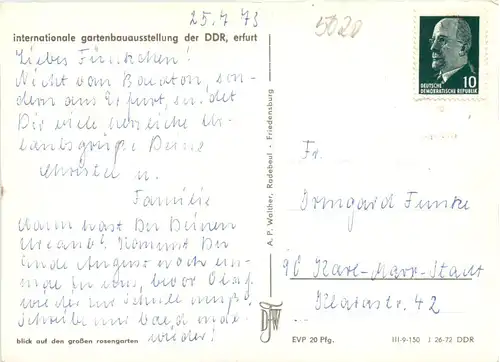 25.7.73
5020
internationale gartenbauausstellung der DDR, erfurt
Liebes Fünkchen!
Nicht vom Balaton, son-
dern aus Erfurt, sendet
Dir viele herzliche Ur-
laubsgrüße Deine
Christel u.
Familie
Wann hast Du Deinen
Urlaub? Kommst Du
Ende August noch ein-
mal zu uns, bevor Olaf
wieder zur Schule muß?
Schreibe mir bald mal
wieder!
blick auf den großen rosengarten
A. P. Walther, Radebeul - Friedensburg
10
DEUTSCHE
DEMOKRATISCHE REPUBLIK
Fr.
Irmgard Funke
90 Karl-Marx-Stadt
Klarastr. 42
EVP 20 Pfg.
III-9-150 J 26-72 DDR